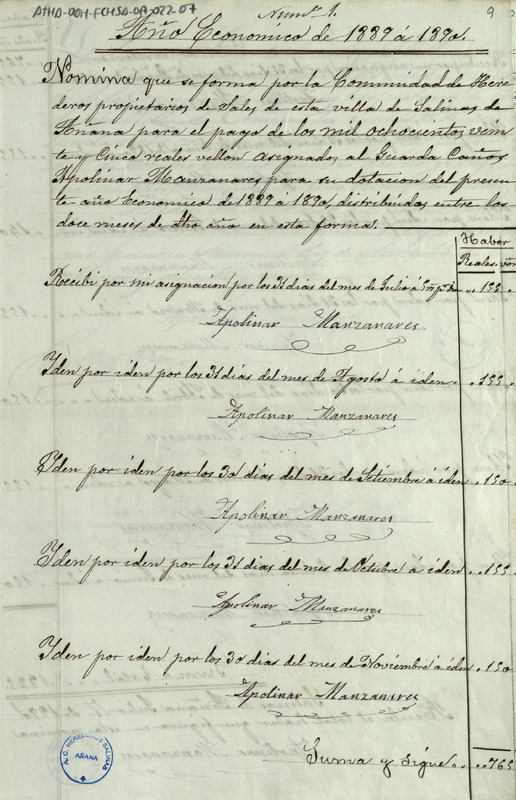 ATHA-DAH-FCHSA-OA-022-07
Num.º 1.
9
Año Economico de 1889 á 1890.
Nomina que se forma por la Comunidad de Here
deros propietarios de Sales de esta villa de Salinas de
Añana para el pago de los mil ochocientos vein
te y Cinco reales vellon asignados al Guarda Caños
Apolinar Manzanares para su dotacion del presen
te año Economico de 1889 á 1890, distribuidos entre los
doce meses de dho año en esta forma.
Haber
Reales vón
Recibi por mi asignacion por los 31 dias del mes de Julio á 5 rs pr dia " 155
Apolinar Manzanares
Yden por iden por los 31 dias del mes de Agosto á iden " 155
Apolinar Manzanares
Yden por iden por los 30 dias del mes de Setiembre á iden " 150
Apolinar Manzanares
Yden por iden por los 31 dias del mes de Octubre á iden " 155
Apolinar Manzanares
Yden por iden por los 30 dias del mes de Noviembre á iden " 150
Apolinar Manzanares
Suma y sigue " 765
A. C. HEREDEROS SALINAS
AÑANA